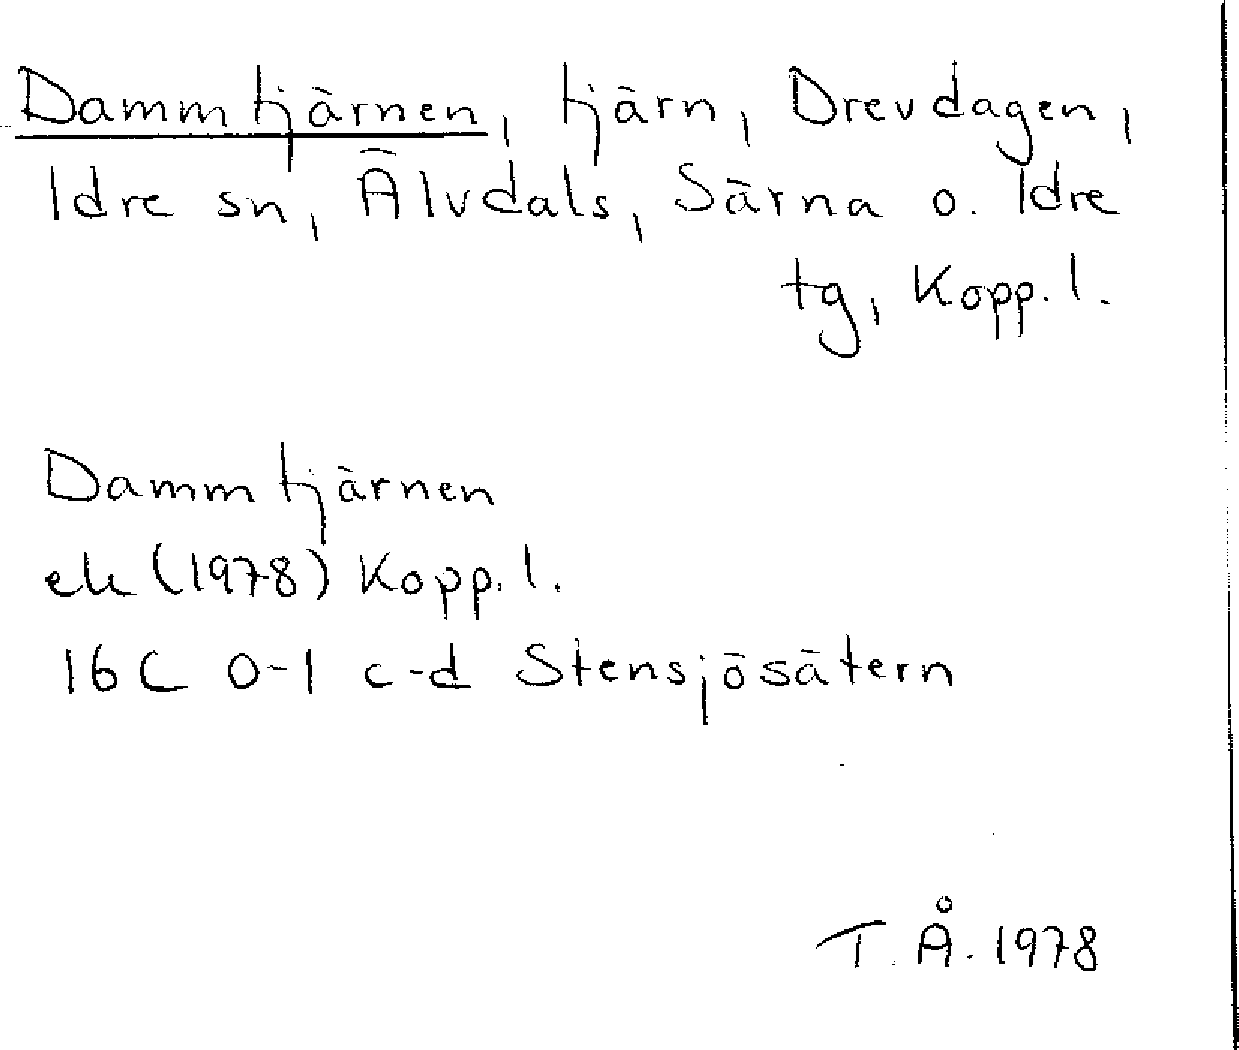 Dammtjärnen, tjärn, Drevdagen,
Idre sn, Älvdals, Särna o. Idre
tg, Kopp. l.
Dammtjärnen
ek (1978) Kopp. l.
16C 0-1 c-d Stensjösätern
T. Å. 1978